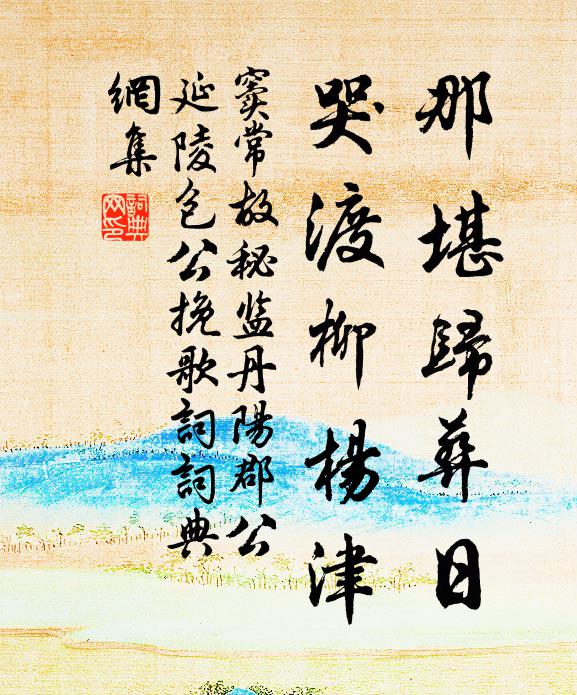 那堪歸葬日
哭渡柳楊津
竇常故秘监丹陽郡公
延陵包公挽歌詞詞典
網集
詞典
网印